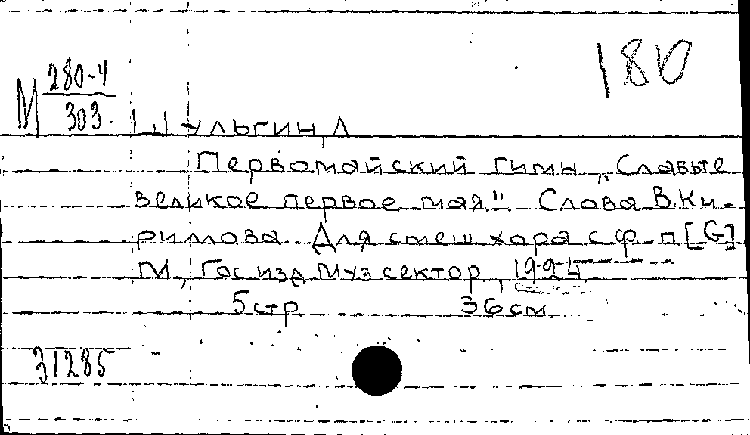 180
М 280-4
303.
Шульгин, Л
Первомайский гимн „Славьте
великое первое мая". Слова В. Ки-
риллова. Для смеш хора с ф-п [G]
М, Гос изд Муз сектор, 1924
5 стр 36 см
31285